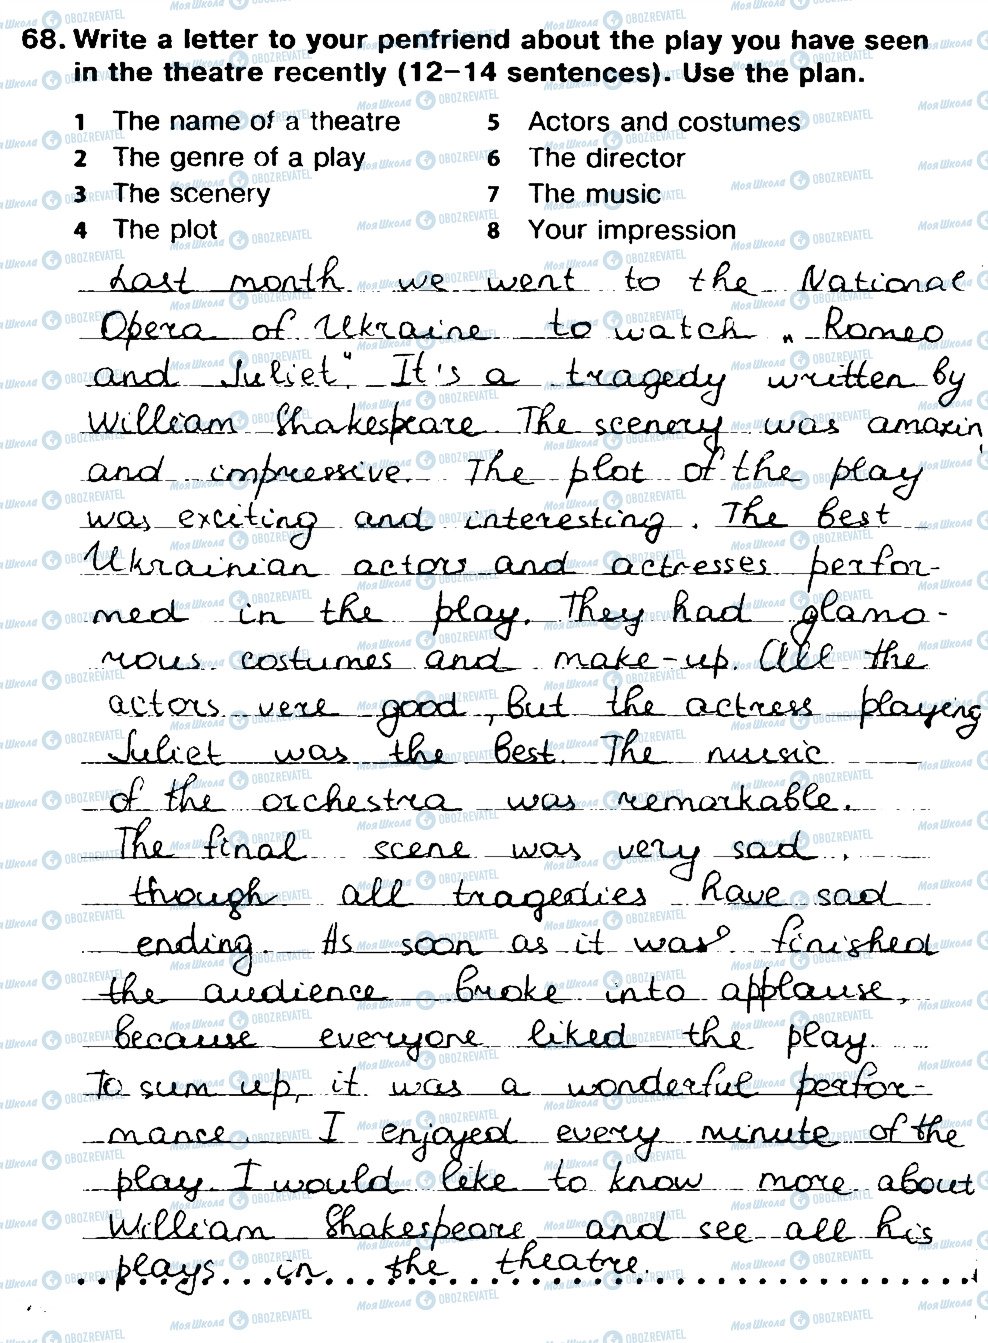 68. Write a letter to your penfriend about the play you have seen
in the theatre recently (12–14 sentences). Use the plan.
1 The name of a theatre
2 The genre of a play
3 The scenery
4 The plot
5 Actors and costumes
6 The director
7 The music
8 Your impression
Last month we went to the National
Opera of Ukraine to watch „Romeo
and Juliet". It's a tragedy written by
William Shakespeare. The scenery was amazin
and impressive. The plot of the play
was exciting and interesting. The best
Ukrainian actors and actresses perfor-
med in the play. They had glamo-
rous costumes and make-up. All the
actors vere good, but the actress playing
Juliet was the best. The music
of the orchestra was remarkable.
The final scene was very sad,
though all tragedies have sad
ending. As soon as it was finished
the audience broke into applause,
because everyone liked the play.
To sum up, it was a wonderful perfor-
mance. I enjoyed every minute of the
play. I would like to know more about
William Shakespeare and see all his
plays in the theatre.
МояШкола OBOZREVATEL